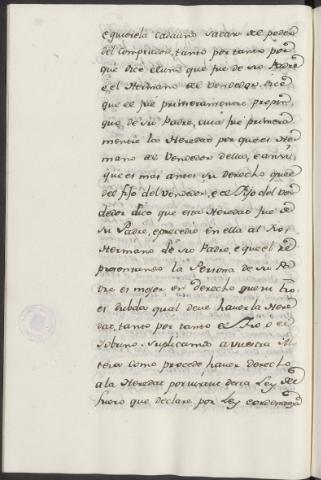 equiere la cadauno sacar de poder
del comprador, tanto por tanto por
que dice el uno que fue de su Padre
e el Hermano del Vendedor dice
que el fue primeramente, propio
que de su Padre, cuia fue primera
mente la Heredad por que es Her
mano del Vendedor della, e ansi,
que es mas antes su derecho que
del fijo del Vendedor, e el Fijo del Ven
dedor dice que esta Heredad fue de
su Padre, e precedio en ella al tio,
Hermano de su Padre, e que el re
presentando la Persona de su Pa
dre es mejor en derecho que su tio
es dubda qual deve haver la Here
dat, tanto por tanto el Tio, o el
Sobrino. Suplicamos a vuestra Al
teza como procede haver derecho
a la Heredat por virtud de la Ley del
fuero que declare por Ley e ordenanza